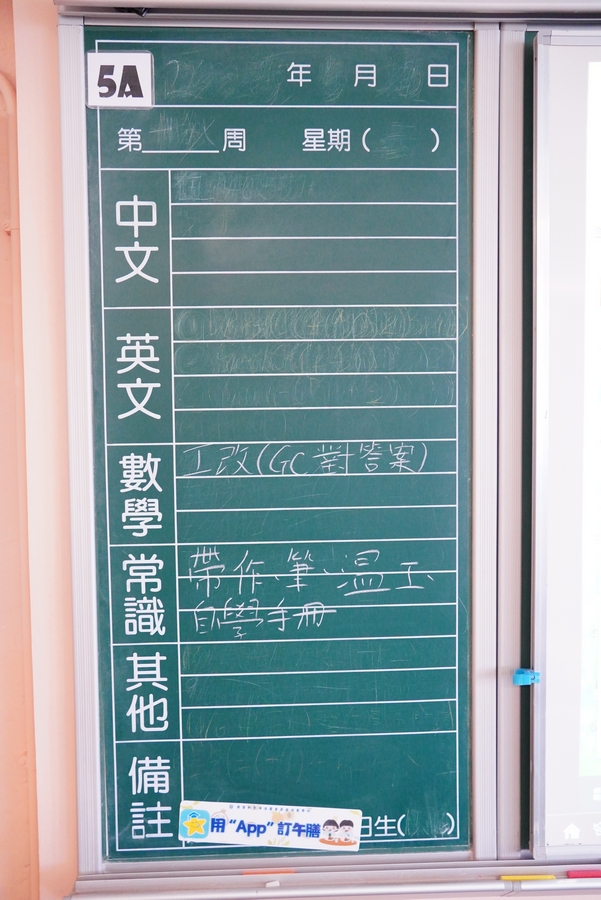 5A
年 月 日
第______周 星期( )
中文
英文
數學
工改(GC 對答案)
常識
帶作、筆、溫工、
自學手冊
其他
備註
用 “App” 訂午膳
日生( )